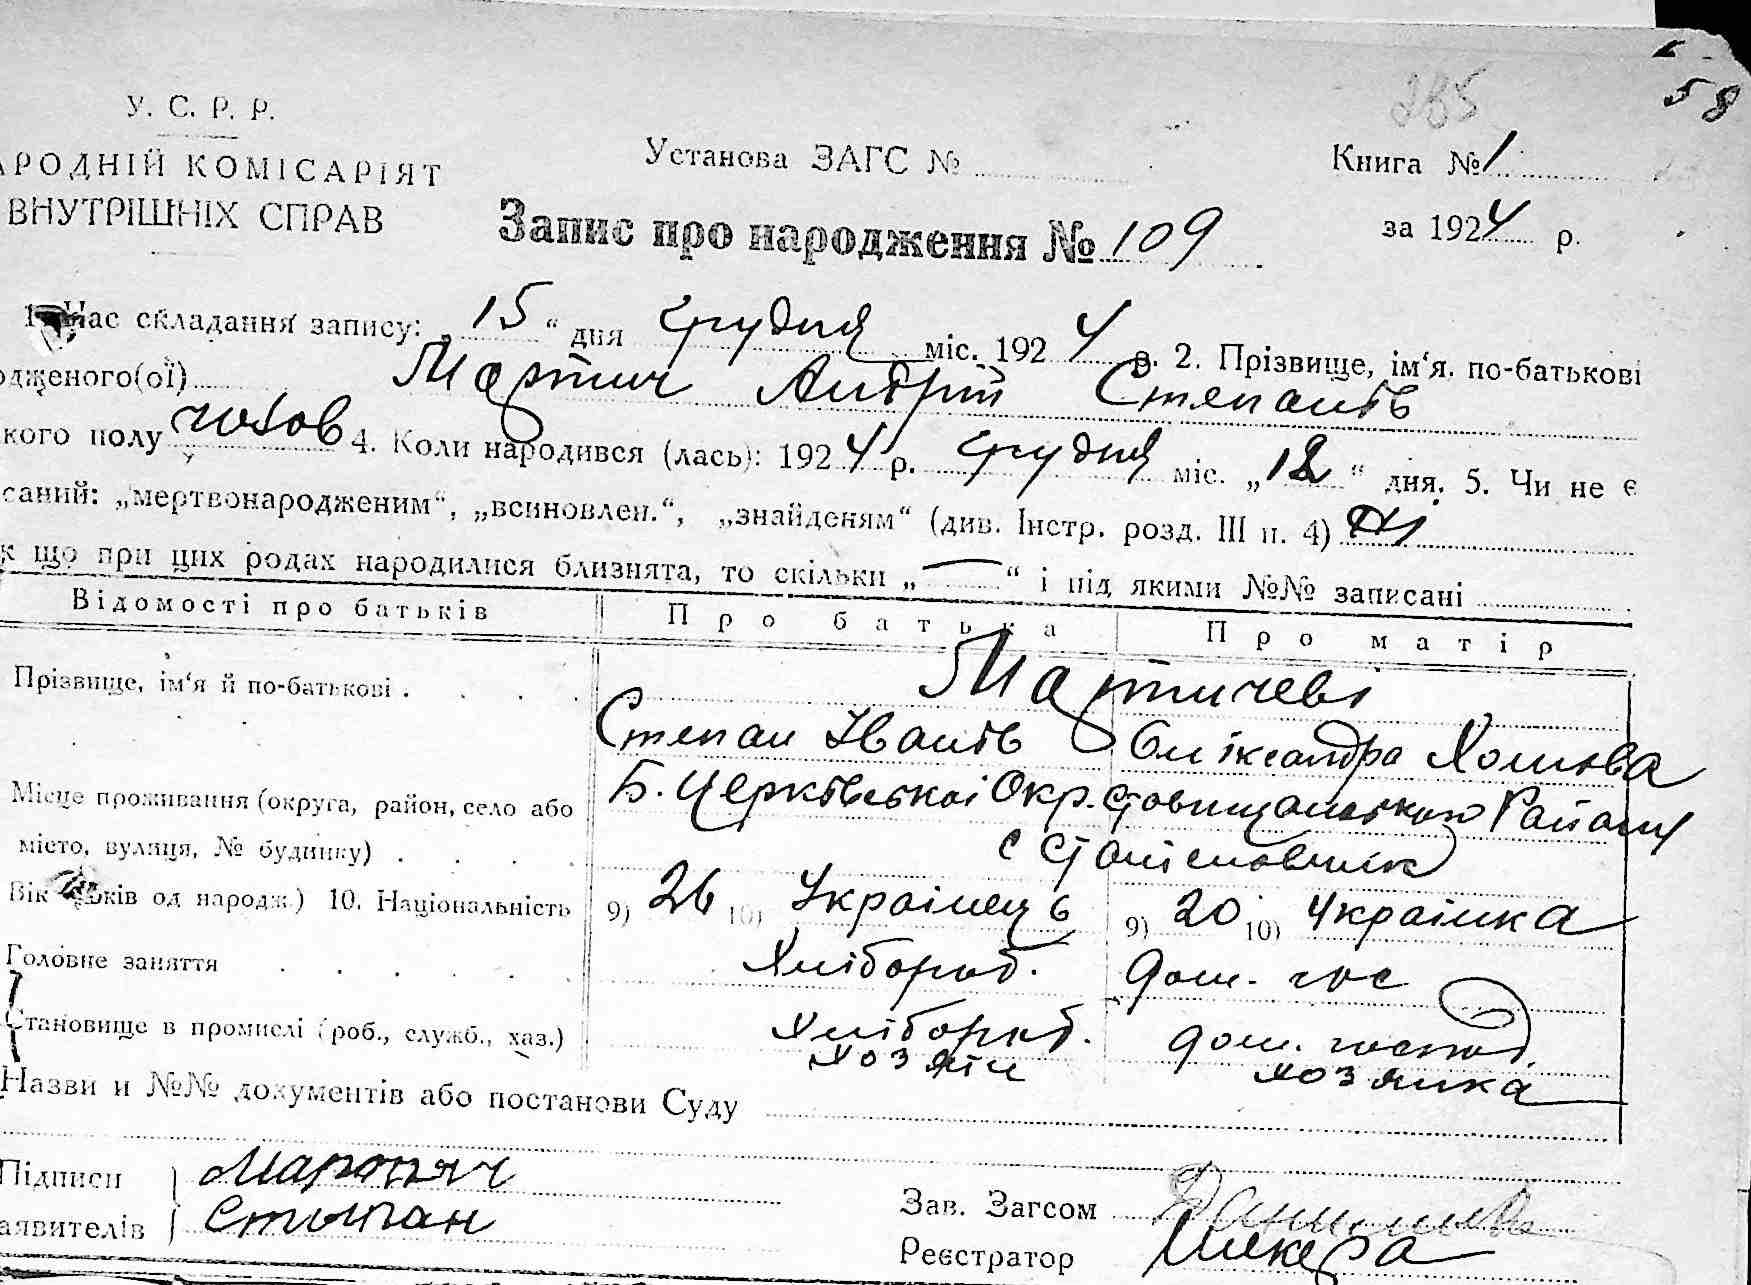 58
285
У. С. Р. Р.
АРОДНІЙ КОМІСАРІЯТ
ВНУТРІШНІХ СПРАВ
Установа ЗАГС №
Книга № 1
за 1924 р.
Запис про народження № 109
1. Час складання запису: „15“ дня Грудня міс. 1924 р. 2. Прізвище, ім‘я, по-батькові
одженого(ої) Мартич Андрій Степанів
кого полу чолов 4. Коли народився (лась): 1924 р. Грудня міс. „12“ дня. 5. Чи не є
саний: „мертвонародженим“, „всиновлен.“, „знайденям“ (див. Інстр. розд. III п. 4) Ні
к що при цих родах народилися близнята, то скільки „—“ і під якими №№ записані
Відомості про батьків Про батька Про матір
Прізвище, ім‘я й по-батькові . Мартичеві
Степан Іванів Олександра Хомова
Місце проживання (округа, район, село або Б. Церківської Окр. Ставищанського Району
місто, вулиця, № будинку) . с Станіславчик
Вік (років од народж.) 10. Національність 9) 26 10) Українець 9) 20 10) Українка
Головне заняття Хлібороб. дом. гос
Становище в промислі (роб., служб., хаз.) Хлібороб. дом. господ.
хозяін хозяика
Назви и №№ документів або постанови Суду
Підписи Маротич
аявителів Степан
Зав. Загсом
Реєстратор Шкера